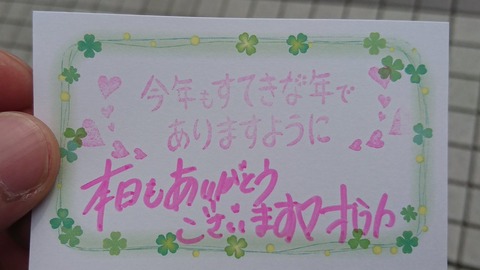 今年もすてきな年で
ありますように
本日もありがとう
ございます♡